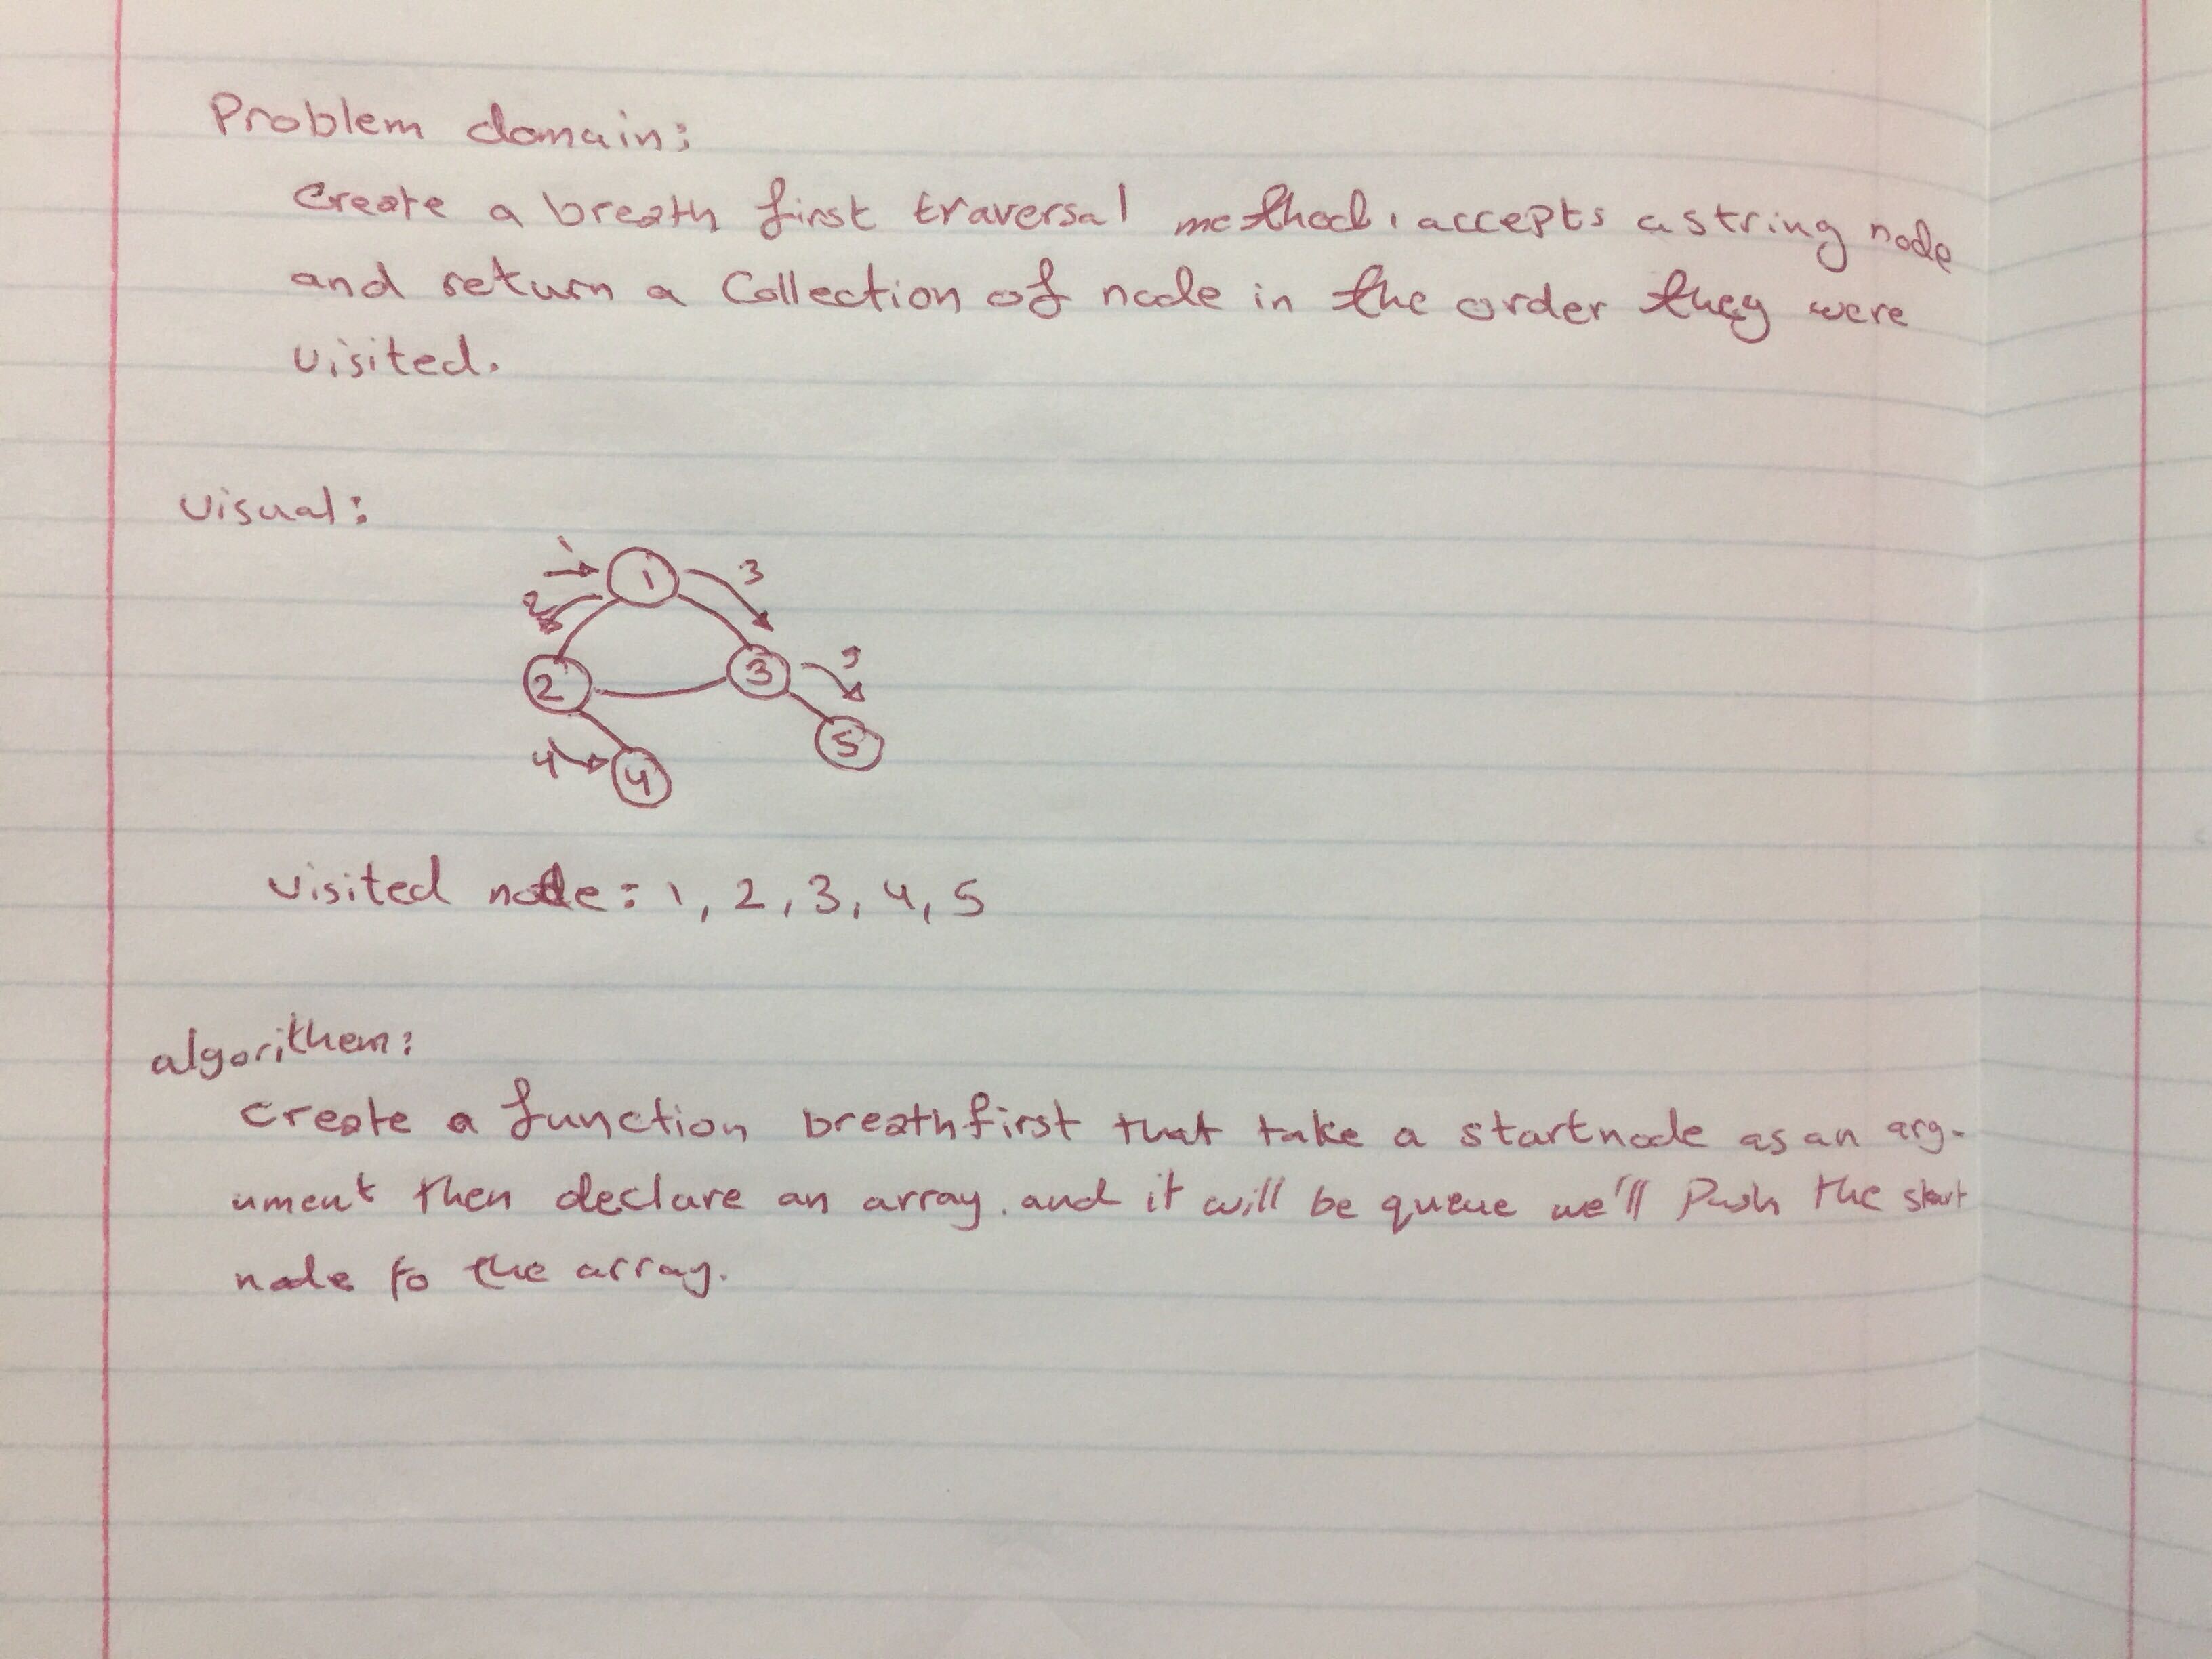 Problem domain:
Create a breath first traversal method, accepts a string node
and return a Collection of node in the order they were
visited.
visual:
1
1
3
2
2
3
5
4
4
visited node: 1, 2, 3, 4, 5
algorithem:
Create a function breathfirst that take a startnode as an arg-
ument then declare an array. and it will be queue we'll Push the start
node to the array.